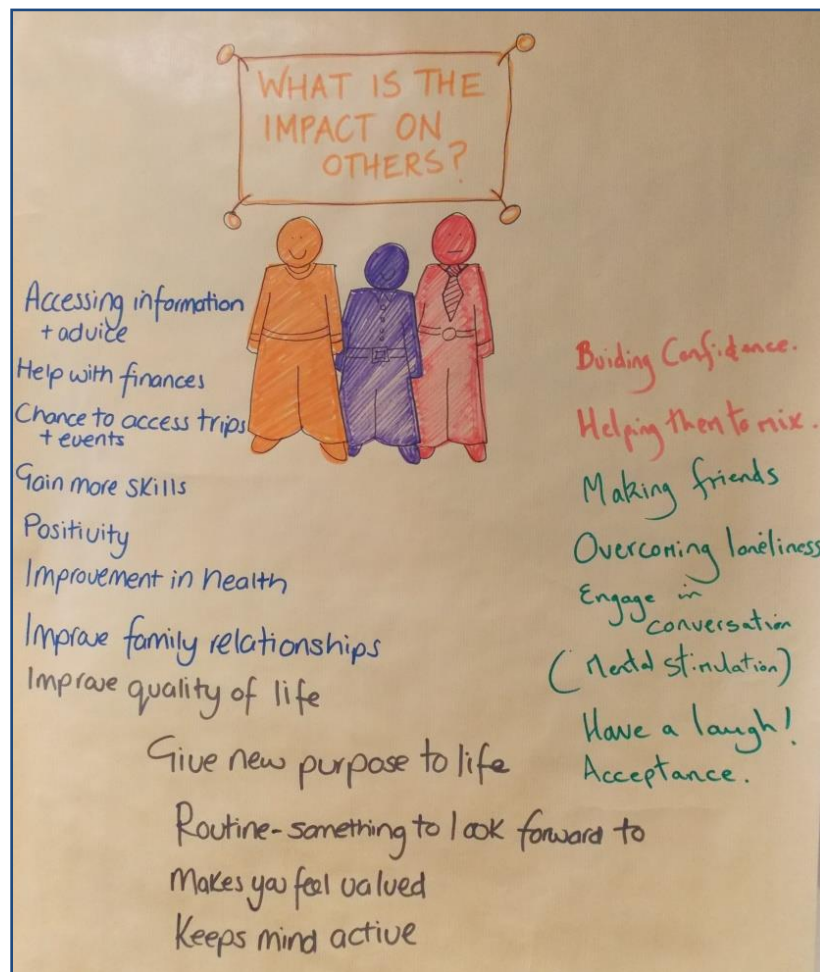 WHAT IS THE
IMPACT ON
OTHERS?
Accessing information
+ advice
Help with finances
Chance to access trips
+ events
Gain more skills
Positivity
Improvement in health
Improve family relationships
Improve quality of life
Give new purpose to life
Routine - something to look forward to
Makes you feel valued
Keeps mind active
Buiding Confidence.
Helping them to mix.
Making friends
Overcoming loneliness
Engage in
conversation
(Mental stimulation)
Have a laugh!
Acceptance.